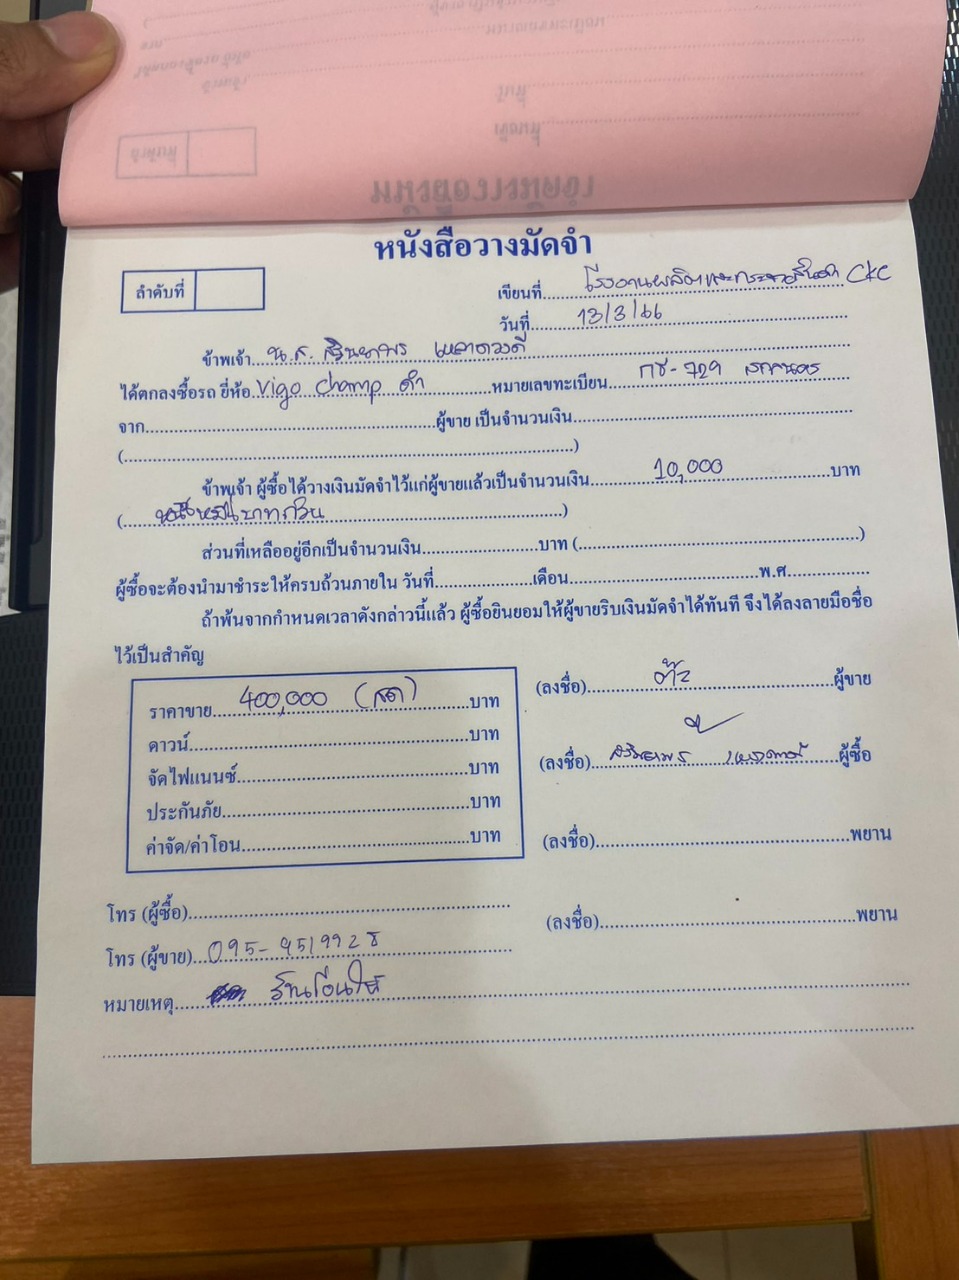 หนังสือวางมัดจำ
ลำดับที่
เขียนที่ โรงงานผลิตและกระจายสินค้า CKC
วันที่ 13/3/66
ข้าพเจ้า น.ส.
ได้ตกลงซื้อรถ ยี่ห้อ Vigo champ ดำ หมายเลขทะเบียน กช-729 สกลนคร
จาก ผู้ขาย เป็นจำนวนเงิน
( )
ข้าพเจ้า ผู้ซื้อได้วางเงินมัดจำไว้แก่ผู้ขายแล้วเป็นจำนวนเงิน 10,000 บาท
( หนึ่งหมื่นบาทถ้วน )
ส่วนที่เหลืออยู่อีกเป็นจำนวนเงิน บาท ( )
ผู้ซื้อจะต้องนำมาชำระให้ครบถ้วนภายใน วันที่ เดือน พ.ศ.
ถ้าพ้นจากกำหนดเวลาดังกล่าวนี้แล้ว ผู้ซื้อยินยอมให้ผู้ขายริบเงินมัดจำได้ทันที จึงได้ลงลายมือชื่อ
ไว้เป็นสำคัญ
ราคาขาย 400,000 (สด) บาท
ดาวน์ บาท
จัดไฟแนนซ์ บาท
ประกันภัย บาท
ค่าจัด/ค่าโอน บาท
(ลงชื่อ) ต๊ะ ผู้ขาย
(ลงชื่อ) ผู้ซื้อ
(ลงชื่อ) พยาน
(ลงชื่อ) พยาน
โทร (ผู้ซื้อ)
โทร (ผู้ขาย) 095-9519928
หมายเหตุ ร้านโอนให้